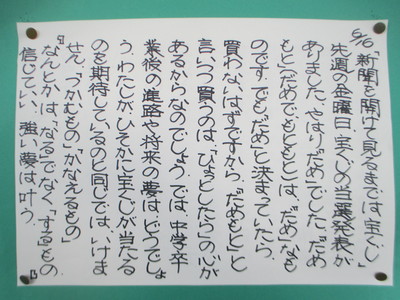 5/16「新聞を開けて見るまでは、宝くじ」
先週の金曜日、宝くじの当選発表が
ありました。やはり「だめ」でした。「だめ
もと」「だめでもともと」は、「だめ」なも
のです。でも「だめ」と決まっていたら、
買わないはずですから、「だめもと」と
言いつつ買うのは、「ひょっとしたら」の心が
あるからなのでしょう。では、中学卒
業後の進路や将来の夢はどうでしょ
う。わたしがひそかに宝くじが当たる
のを期待しているのと同じでは、いけま
せん。「つかむもの」「かなえるもの」
『なんとかは、「なる」でなく「する」もの』
信じていい、強い夢は叶う。